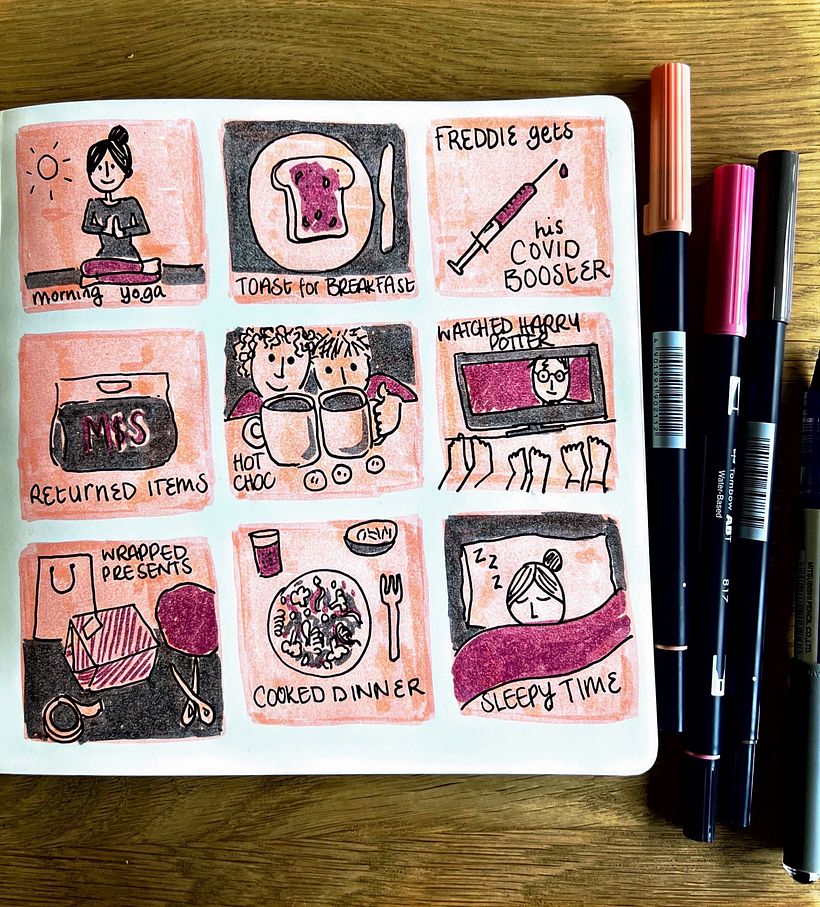 morning yoga
TOAST for BREAKFAST
FREDDIE gets
his
COVID
BOOSTER
M&S
RETURNED ITEMS
HOT
CHOC
WATCHED HARRY
POTTER
WRAPPED
PRESENTS
COOKED DINNER
Z
Z
Z
SLEEPY TIME
4 901991 902112
Tombow ABT
Water-Based
817
MITSUBISHI PENCIL CO.,LTD